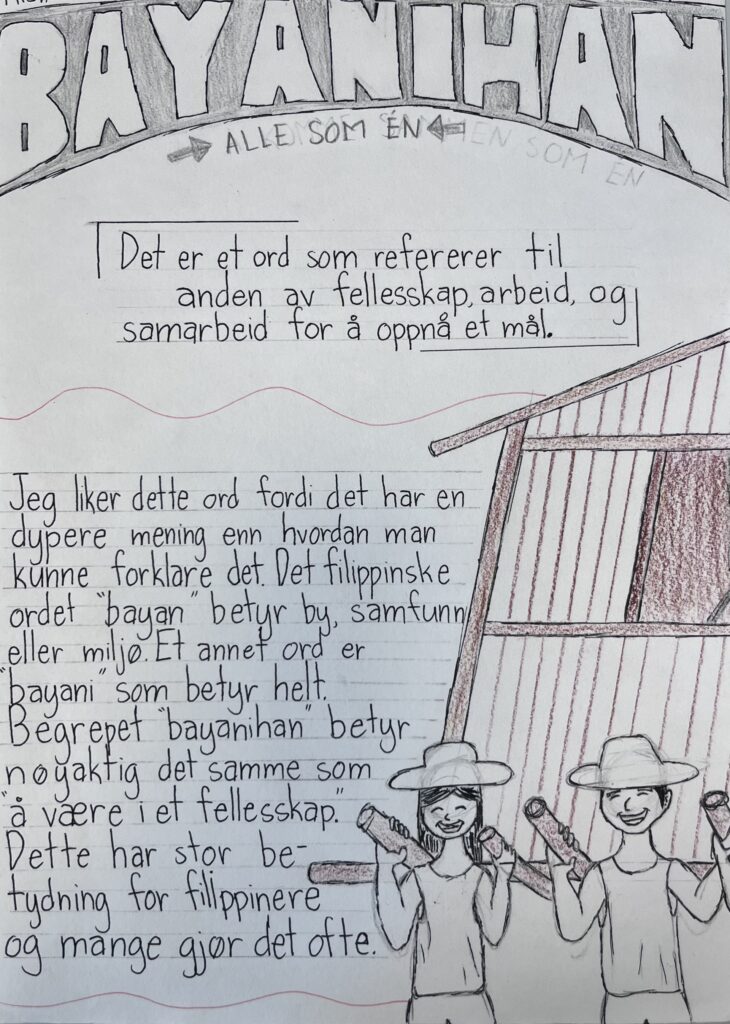 BAYANIHAN
ALLE SOM ÉN
Det er et ord som refererer til
anden av fellesskap, arbeid, og
samarbeid for å oppnå et mål.
Jeg liker dette ord fordi det har en
dypere mening enn hvordan man
kunne forklare det. Det filippinske
ordet "bayan" betyr by, samfunn
eller miljø. Et annet ord er
"bayani" som betyr helt.
Begrepet "bayanihan" betyr
nøyaktig det samme som
"å være i et fellesskap."
Dette har stor be-
tydning for filippinere
og mange gjør det ofte.